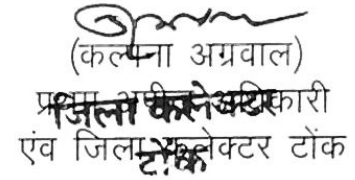 (कल्पना अग्रवाल)
प्रथम अपील अधिकारी
जिला कलेक्टर
एंव जिला कलेक्टर टोंक
टोंक